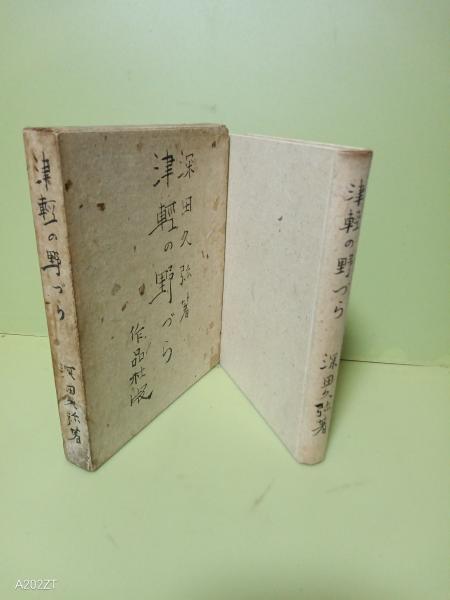 津軽の野づら
深田久弥著
深田久弥著
津軽の野づら
作品社版
津軽の野づら
深田久弥著
A202ZT